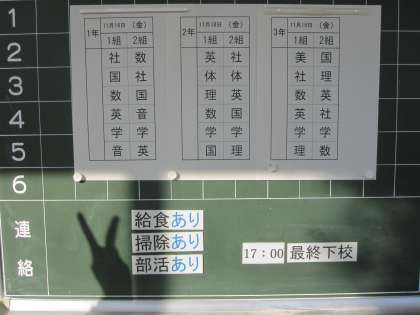 1年 11月18日 (金)
1組 2組
社 数
国 社
数 国
英 音
学 学
音 英
2年 11月18日 (金)
1組 2組
英 社
体 体
理 英
数 国
学 学
国 理
3年 11月18日 (金)
1組 2組
美 国
社 理
数 英
英 社
学 学
理 数
1
2
3
4
5
6
連絡
給食あり
掃除あり
部活あり
17：00 最終下校